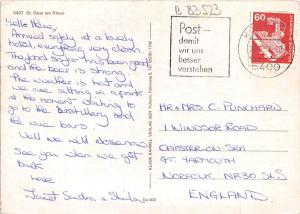 5407 St. Goar am Rhein
B 83523
Hello there,
Arrived safely at a lovely
hotel, everything very clean.
The food so far has been good
and the beer is strong.
The weather is hot and
we are sitting in a park
at the moment waiting to
go to the Distillery and
the wee tours.
Well we will see
see you when we get
back.
Love
Janet Sandra & Sheila
Post -
damit
wir uns
besser
verstehen
60
5400
MR & MRS C. PUNCHARD
1 WINDSOR ROAD
CAISTER-ON-SEA
GT. YARMOUTH
NORFOLK NR30 5LS
ENGLAND.